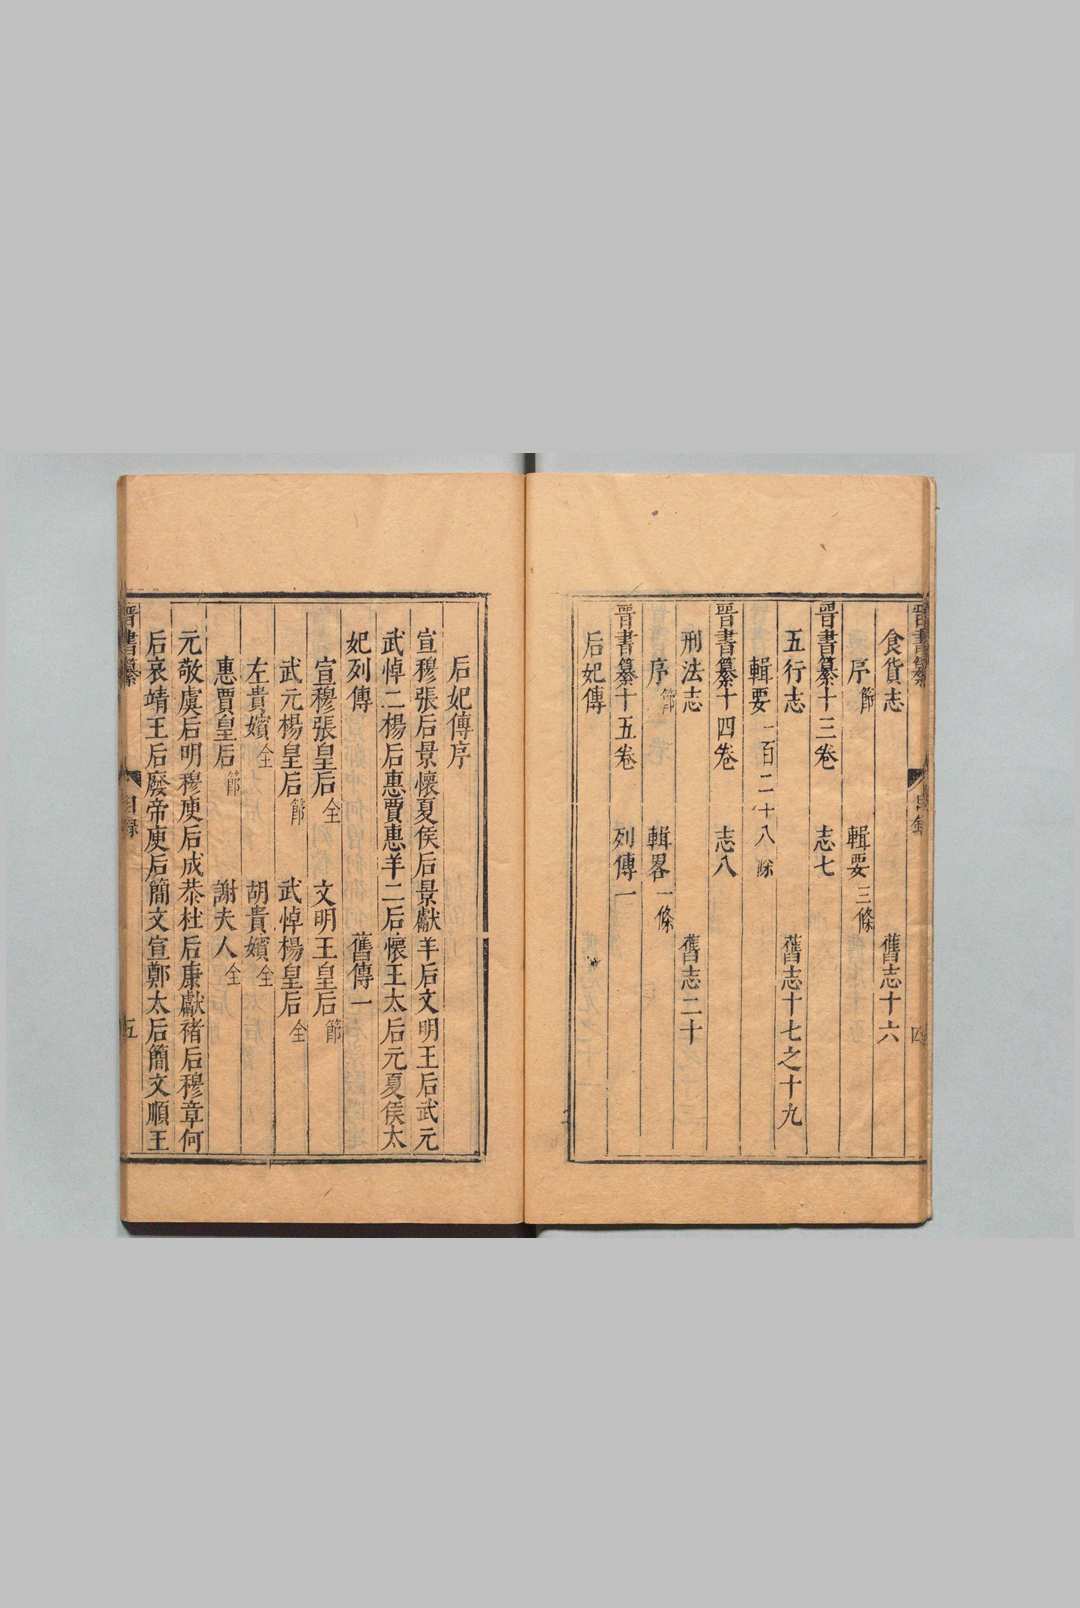 晉書纂 目錄 四
食貨志 舊志十六
序節 輯要三條
晉書纂十三卷 志七
五行志 舊志十七之十九
輯要一百二十八條
晉書纂十四卷 志八
刑法志 舊志二十
序節 輯畧一條
晉書纂十五卷 列傳一
后妃傳
后妃傳序
宣穆張后景懷夏侯后景獻羊后文明王后武元
武悼二楊后惠賈惠羊二后懷王太后元夏侯太
妃列傳 舊傳一
宣穆張皇后全 文明王皇后節
武元楊皇后節 武悼楊皇后全
左貴嬪全 胡貴嬪全
惠賈皇后節 謝夫人全
元敬虞后明穆庾后成恭杜后康獻褚后穆章何
后哀靖王后廢帝庾后簡文宣鄭太后簡文順王
晉書纂 目錄 五